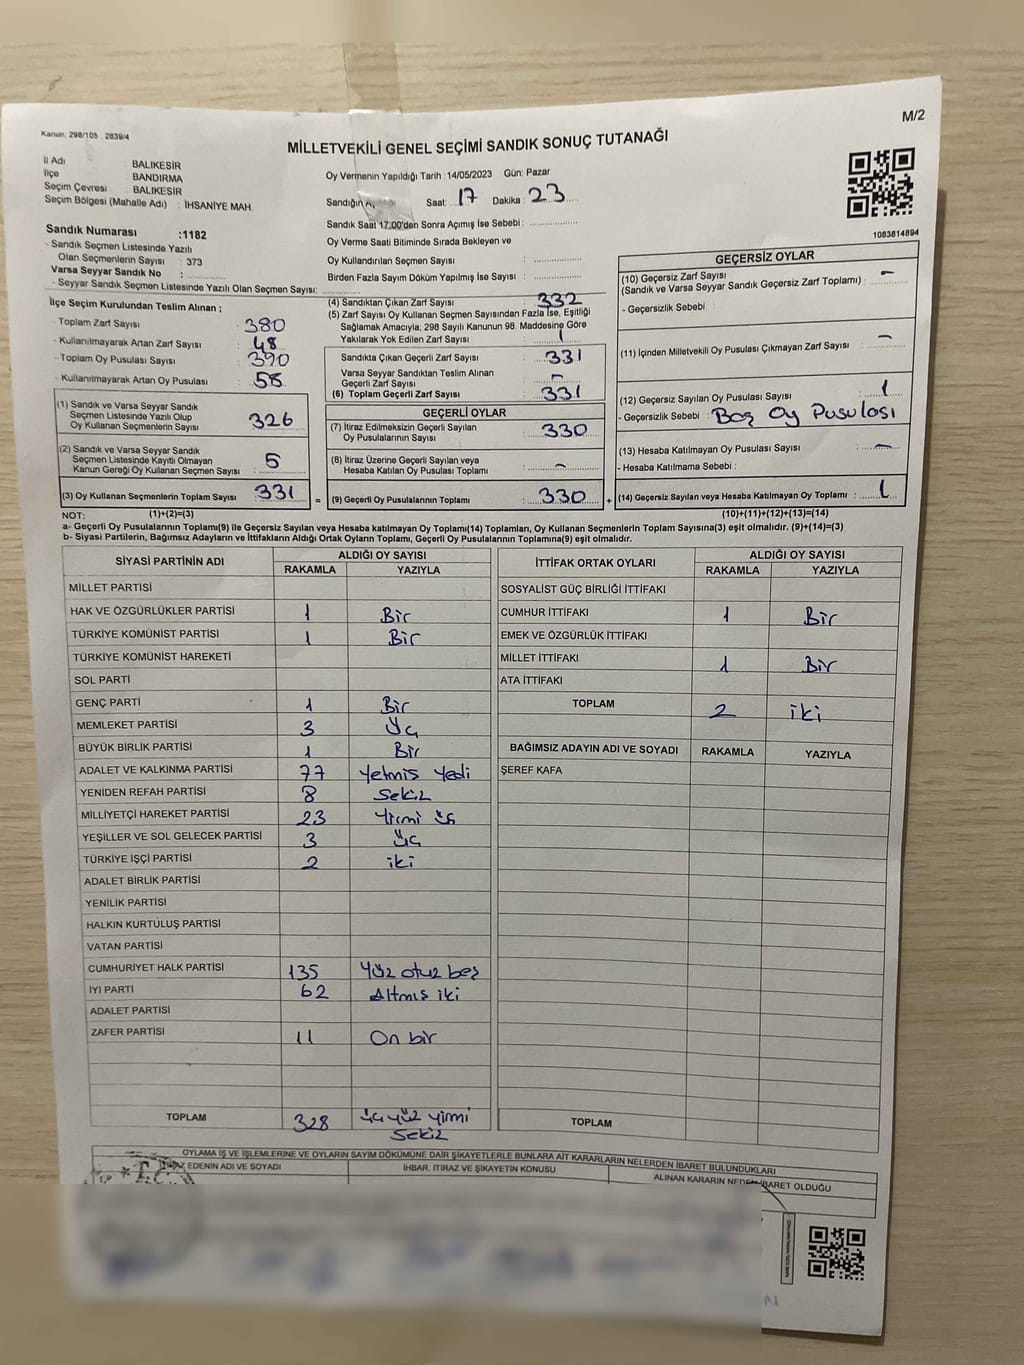 Kanun: 298/105 , 2839/4
M/2
MİLLETVEKİLİ GENEL SEÇİMİ SANDIK SONUÇ TUTANAĞI
İl Adı BALIKESİR
İlçe BANDIRMA
Seçim Çevresi BALIKESİR
Seçim Bölgesi (Mahalle Adı) : İHSANİYE MAH.
Oy Vermenin Yapıldığı Tarih :14/05/2023 Gün: Pazar
Sandığın Saat: 17 Dakika: 23
Sandık Saat 17.00'den Sonra Açımış İse Sebebi :
Oy Verme Saati Bitiminde Sırada Bekleyen ve
Oy Kullandırılan Seçmen Sayısı :
Birden Fazla Sayım Döküm Yapılmış İse Sayısı :
1083814894
Sandık Numarası :1182
- Sandık Seçmen Listesinde Yazılı
Olan Seçmenlerin Sayısı : 373
Varsa Seyyar Sandık No :
- Seyyar Sandık Seçmen Listesinde Yazılı Olan Seçmen Sayısı:
İlçe Seçim Kurulundan Teslim Alınan ;
- Toplam Zarf Sayısı : 380
- Kullanılmayarak Artan Zarf Sayısı : 48
- Toplam Oy Pusulası Sayısı : 390
- Kullanılmayarak Artan Oy Pusulası : 58
(1) Sandık ve Varsa Seyyar Sandık
Seçmen Listesinde Yazılı Olup
Oy Kullanan Seçmenlerin Sayısı : 326
(2) Sandık ve Varsa Seyyar Sandık
Seçmen Listesinde Kayıtlı Olmayan
Kanun Gereği Oy Kullanan Seçmen Sayısı : 5
(3) Oy Kullanan Seçmenlerin Toplam Sayısı : 331
(4) Sandıktan Çıkan Zarf Sayısı : 332
(5) Zarf Sayısı Oy Kullanan Seçmen Sayısından Fazla İse, Eşitliği
Sağlamak Amacıyla; 298 Sayılı Kanunun 98. Maddesine Göre
Yakılarak Yok Edilen Zarf Sayısı : 1
Sandıkta Çıkan Geçerli Zarf Sayısı : 331
Varsa Seyyar Sandıktan Teslim Alınan
Geçerli Zarf Sayısı : -
(6) Toplam Geçerli Zarf Sayısı : 331
GEÇERLİ OYLAR
(7) İtiraz Edilmeksizin Geçerli Sayılan
Oy Pusulalarının Sayısı : 330
(8) İtiraz Üzerine Geçerli Sayılan veya
Hesaba Katılan Oy Pusulası Toplamı : -
= (9) Geçerli Oy Pusulalarının Toplamı : 330
GEÇERSİZ OYLAR
(10) Geçersiz Zarf Sayısı
(Sandık ve Varsa Seyyar Sandık Geçersiz Zarf Toplamı) : -
- Geçersizlik Sebebi :
(11) İçinden Milletvekili Oy Pusulası Çıkmayan Zarf Sayısı : -
(12) Geçersiz Sayılan Oy Pusulası Sayısı : 1
- Geçersizlik Sebebi : Boş Oy Pusulası
(13) Hesaba Katılmayan Oy Pusulası Sayısı : -
- Hesaba Katılmama Sebebi :
+ (14) Geçersiz Sayılan veya Hesaba Katılmayan Oy Toplamı : 1
NOT: (1)+(2)=(3)
(10)+(11)+(12)+(13)=(14)
a- Geçerli Oy Pusulalarının Toplamı(9) ile Geçersiz Sayılan veya Hesaba katılmayan Oy Toplamı(14) Toplamları, Oy Kullanan Seçmenlerin Toplam Sayısına(3) eşit olmalıdır. (9)+(14)=(3)
b- Siyasi Partilerin, Bağımsız Adayların ve İttifakların Aldığı Ortak Oyların Toplamı, Geçerli Oy Pusulalarının Toplamına(9) eşit olmalıdır.
SİYASİ PARTİNİN ADI ALDIĞI OY SAYISI
RAKAMLA YAZIYLA
MİLLET PARTİSİ
HAK VE ÖZGÜRLÜKLER PARTİSİ 1 Bir
TÜRKİYE KOMÜNİST PARTİSİ 1 Bir
TÜRKİYE KOMÜNİST HAREKETİ
SOL PARTİ
GENÇ PARTİ 1 Bir
MEMLEKET PARTİSİ 3 Üç
BÜYÜK BİRLİK PARTİSİ 1 Bir
ADALET VE KALKINMA PARTİSİ 77 Yetmiş Yedi
YENİDEN REFAH PARTİSİ 8 Sekiz
MİLLİYETÇİ HAREKET PARTİSİ 23 Yirmi üç
YEŞİLLER VE SOL GELECEK PARTİSİ 3 Üç
TÜRKİYE İŞÇİ PARTİSİ 2 iki
ADALET BİRLİK PARTİSİ
YENİLİK PARTİSİ
HALKIN KURTULUŞ PARTİSİ
VATAN PARTİSİ
CUMHURİYET HALK PARTİSİ 135 Yüz otuz beş
İYİ PARTİ 62 Altmış iki
ADALET PARTİSİ
ZAFER PARTİSİ 11 On bir
TOPLAM 328 Üç yüz yirmi
Sekiz
İTTİFAK ORTAK OYLARI ALDIĞI OY SAYISI
RAKAMLA YAZIYLA
SOSYALİST GÜÇ BİRLİĞİ İTTİFAKI
CUMHUR İTTİFAKI 1 Bir
EMEK VE ÖZGÜRLÜK İTTİFAKI
MİLLET İTTİFAKI 1 Bir
ATA İTTİFAKI
TOPLAM 2 iki
BAĞIMSIZ ADAYIN ADI VE SOYADI RAKAMLA YAZIYLA
ŞEREF KAFA
TOPLAM
OYLAMA İŞ VE İŞLEMLERİNE VE OYLARIN SAYIM DÖKÜMÜNE DAİR ŞİKAYETLERLE BUNLARA AİT KARARLARIN NELERDEN İBARET BULUNDUKLARI
EDENİN ADI VE SOYADI İHBAR, İTİRAZ VE ŞİKAYETİN KONUSU ALINAN KARARIN NEDEN İBARET OLDUĞU
T.C.